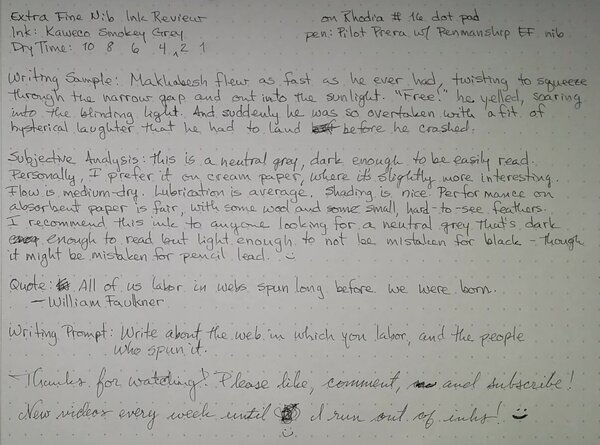 Extra Fine Nib Ink Review on Rhodia #16 dot pad
Ink: Kaweco Smokey Grey pen: Pilot Prera w/ Penmanship EF nib
Dry Time: 10 8 6 4 2 1
Writing Sample: Makhabesh flew as fast as he ever had, twisting to squeeze
through the narrow gap and out into the sunlight. "Free!" he yelled, soaring
into the blinding light. And suddenly he was so overtaken with a fit of
hysterical laughter that he had to land before he crashed.
Subjective Analysis: This is a neutral grey, dark enough to be easily read.
Personally, I prefer it on cream paper, where it's slightly more interesting.
Flow is medium-dry. Lubrication is average. Shading is nice. Performance on
absorbent paper is fair, with some wool and some small, hard-to-see feathers.
I recommend this ink to anyone looking for a neutral grey that's dark
enough to read but light enough to not be mistaken for black - though
it might be mistaken for pencil lead.
Quote: All of us labor in webs spun long before we were born.
- William Faulkner
Writing Prompt: Write about the web in which you labor, and the people
who spun it.
Thanks for watching! Please like, comment, and subscribe!
New videos every week until I run out of inks!